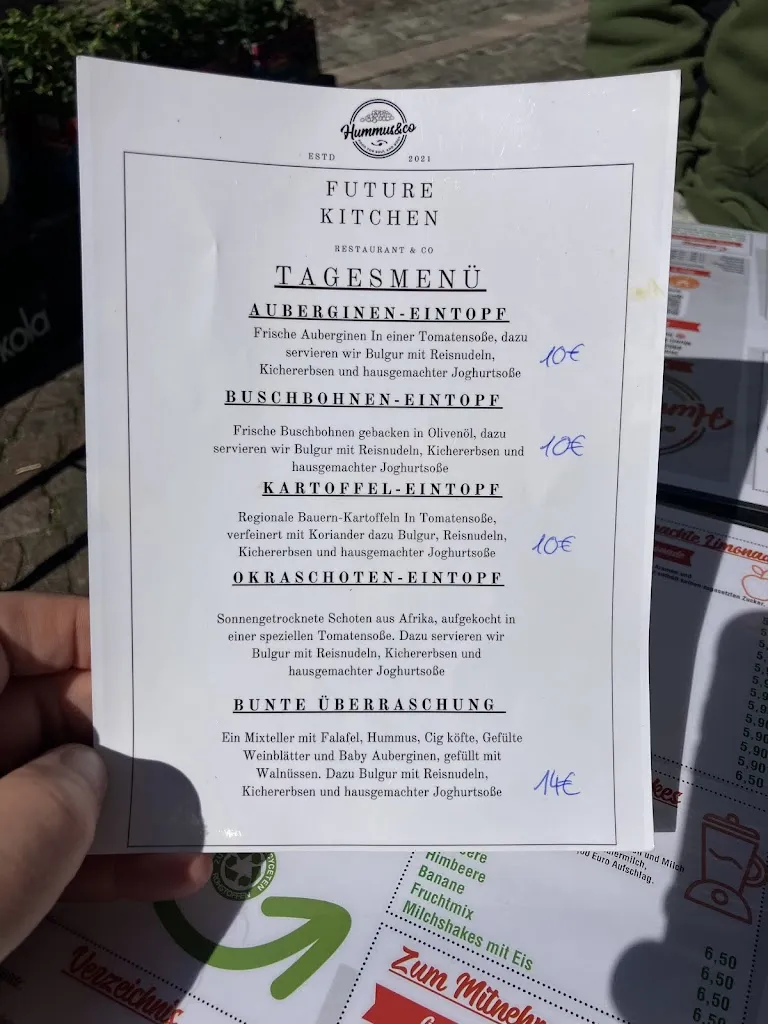 Hummus&co
ESTD 2021
FUTURE
KITCHEN
RESTAURANT & CO
TAGESMENÜ
AUBERGINEN-EINTOPF
Frische Auberginen In einer Tomatensoße, dazu
servieren wir Bulgur mit Reisnudeln,
Kichererbsen und hausgemachter Joghurtsoße
10€
BUSCHBOHNEN-EINTOPF
Frische Buschbohnen gebacken in Olivenöl, dazu
servieren wir Bulgur mit Reisnudeln, Kichererbsen und
hausgemachter Joghurtsoße
10€
KARTOFFEL-EINTOPF
Regionale Bauern-Kartoffeln In Tomatensoße,
verfeinert mit Koriander dazu Bulgur, Reisnudeln,
Kichererbsen und hausgemachter Joghurtsoße
10€
OKRASCHOTEN-EINTOPF
Sonnengetrocknete Schoten aus Afrika, aufgekocht in
einer speziellen Tomatensoße. Dazu servieren wir
Bulgur mit Reisnudeln, Kichererbsen und
hausgemachter Joghurtsoße
BUNTE ÜBERRASCHUNG
Ein Mixteller mit Falafel, Hummus, Cig köfte, Gefülte
Weinblätter und Baby Auberginen, gefüllt mit
Walnüssen. Dazu Bulgur mit Reisnudeln,
Kichererbsen und hausgemachter Joghurtsoße
14€
kola
5,90
5,90
5,90
5,90
6,50
und Milch
Euro Aufschlag.
Himbeere
Banane
Fruchtmix
Milchshakes mit Eis
6,50
6,50
6,50
6,50
Verzeichnis
Zum Mitnehm